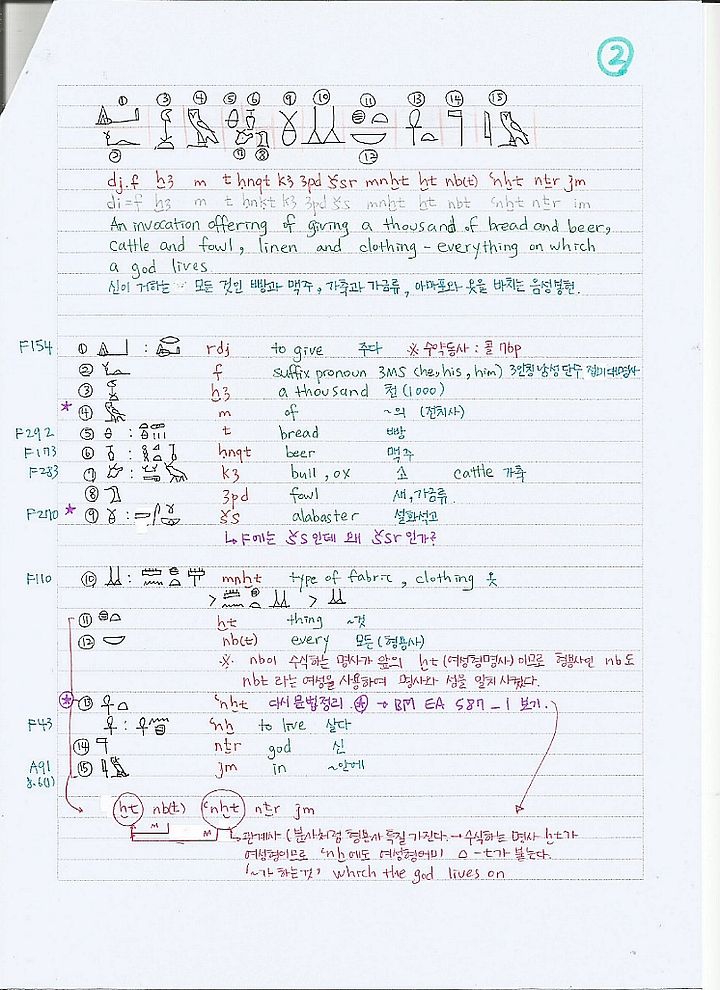 ②
① ③ ④ ⑤ ⑥ ⑨ ⑩ ⑪ ⑬ ⑭ ⑮
② ⑦ ⑧ ⑫
dj.f ḫ3 m t ḥnqt k3 3pd šsr mnḫt ḫt nb(t) ꜥnḫt nṯr jm
di=f ḫ3 m t ḥnkt k3 3pd šs mnḫt ḫt nbt ꜥnḫt nṯr im
An invocation offering of giving a thousand of bread and beer,
cattle and fowl, linen and clothing - everything on which
a god lives.
신이 거하는 모든 것인 빵과 맥주, 가축과 가금류, 아마포와 옷을 바치는 음성봉헌.
F154 ① : rdj to give 주다 ※ 수약동사 : 콜 76p
② f suffix pronoun 3MS (he, his, him) 3인칭 남성 단수 접미대명사
③ ḫ3 a thousand 천 (1000)
* ④ m of ~의 (전치사)
F292 ⑤ : t bread 빵
F173 ⑥ : ḥnqt beer 맥주
F283 ⑦ : k3 bull, ox 소 cattle 가축
⑧ 3pd fowl 새, 가금류
F270 * ⑨ : šs alabaster 설화석고
↳ F에는 šs인데 왜 šsr인가?
F110 ⑩ : mnḫt type of fabric, clothing 옷
> >
⑪ ḫt thing ~것
⑫ nb(t) every 모든 (형용사)
※ nb이 수식하는 명사가 앞의 ḫt (여성형명사) 이므로 형용사인 nb도
nbt 라는 여성을 사용하여 명사와 성을 일치 시켰다.
* ⑬ ꜥnḫt 다시 문법정리 * → BM EA 587_1 보기.
F43 : ꜥnḫ to live 살다
⑭ nṯr god 신
A91 ⑮ jm in ~안에
8.6(1)
ḫt nb(t) ꜥnḫt nṯr jm
M M ↳ 관계사 (분사처럼 형용사 특질 가진다. → 수식하는 명사 ḫt가
여성형이므로 ꜥnḫ에도 여성형어미 -t가 붙는다.
'~가 하는 것' which the god lives on